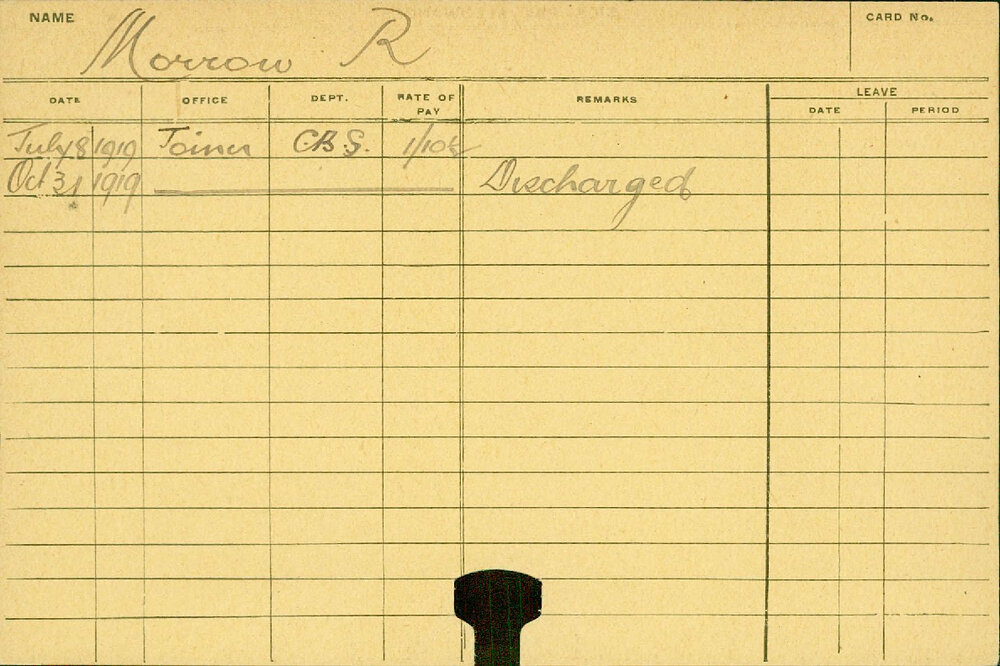 NAME
Morrow R
CARD No.
DATE OFFICE DEPT. RATE OF PAY REMARKS LEAVE
DATE PERIOD
July 8 1919 Joiner C.B.S. 1/10½
Oct 31 1919 Discharged